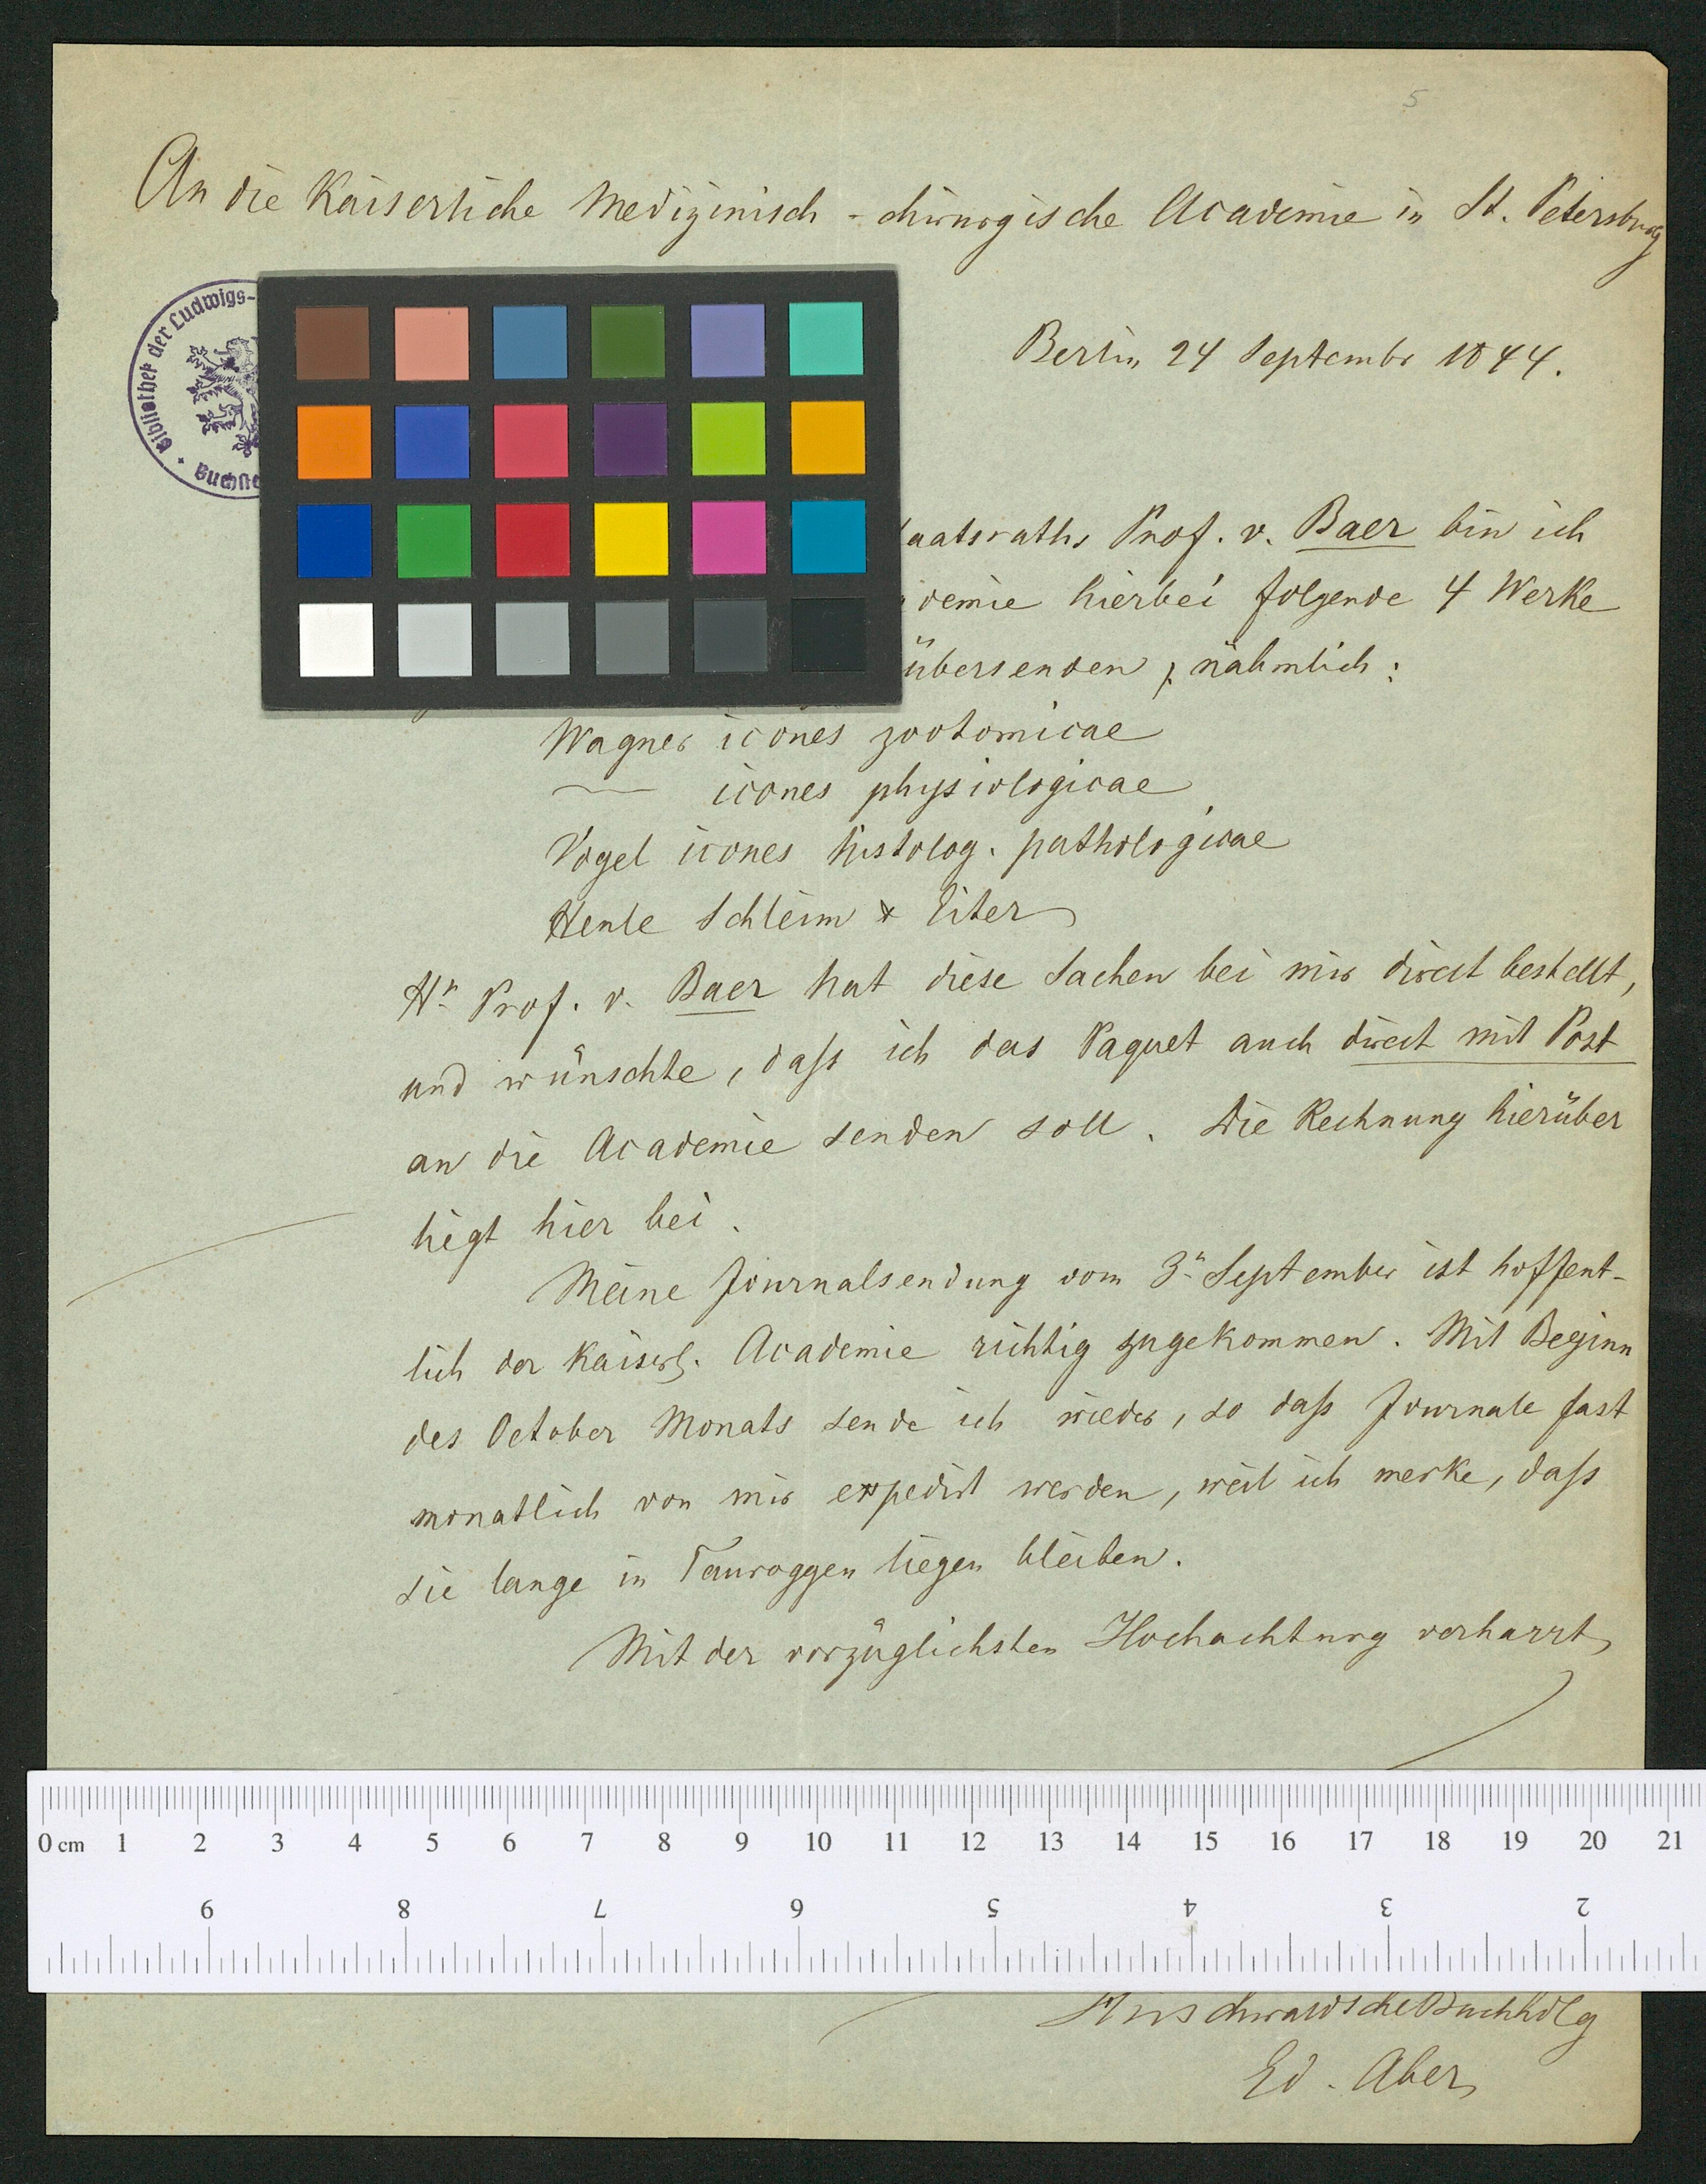 5
An die Kaiserliche Medizinisch-chirurgische Academie in St. Petersburg
Bibliothek der Ludwigs-
Berlin 24 September 1844.
aatsraths Prof. v. Baer bin ich
demie hierbei folgende 4 Werke
übersenden, nähmlich:
Wagner icones zootomicae
— icones physiologicae
Vogel icones histolog. pathologicae
Henle Schleim & Eiter
Hr Prof. v. Baer hat diese Sachen bei mir direct bestellt,
und wünschte, daſs ich das Paquet auch direct mit Post
an die Academie senden soll. Die Rechnung hierüber
liegt hier bei.
Meine Journalsendung vom 3n September ist hoffent-
lich der Kaiserl. Academie richtig zugekommen. Mit Beginn
des October Monats sende ich wieder, so daſs Journale fast
monatlich von mir expedirt werden, weil ich merke, daſs
sie lange in Tauroggen liegen bleiben.
Mit der vorzüglichsten Hochachtung verharrt
0 cm 1 2 3 4 5 6 7 8 9 10 11 12 13 14 15 16 17 18 19 20 21
9 8 7 6 5 4 3 2
Hirschwaldsche Buchhdlg
Ed. Aber